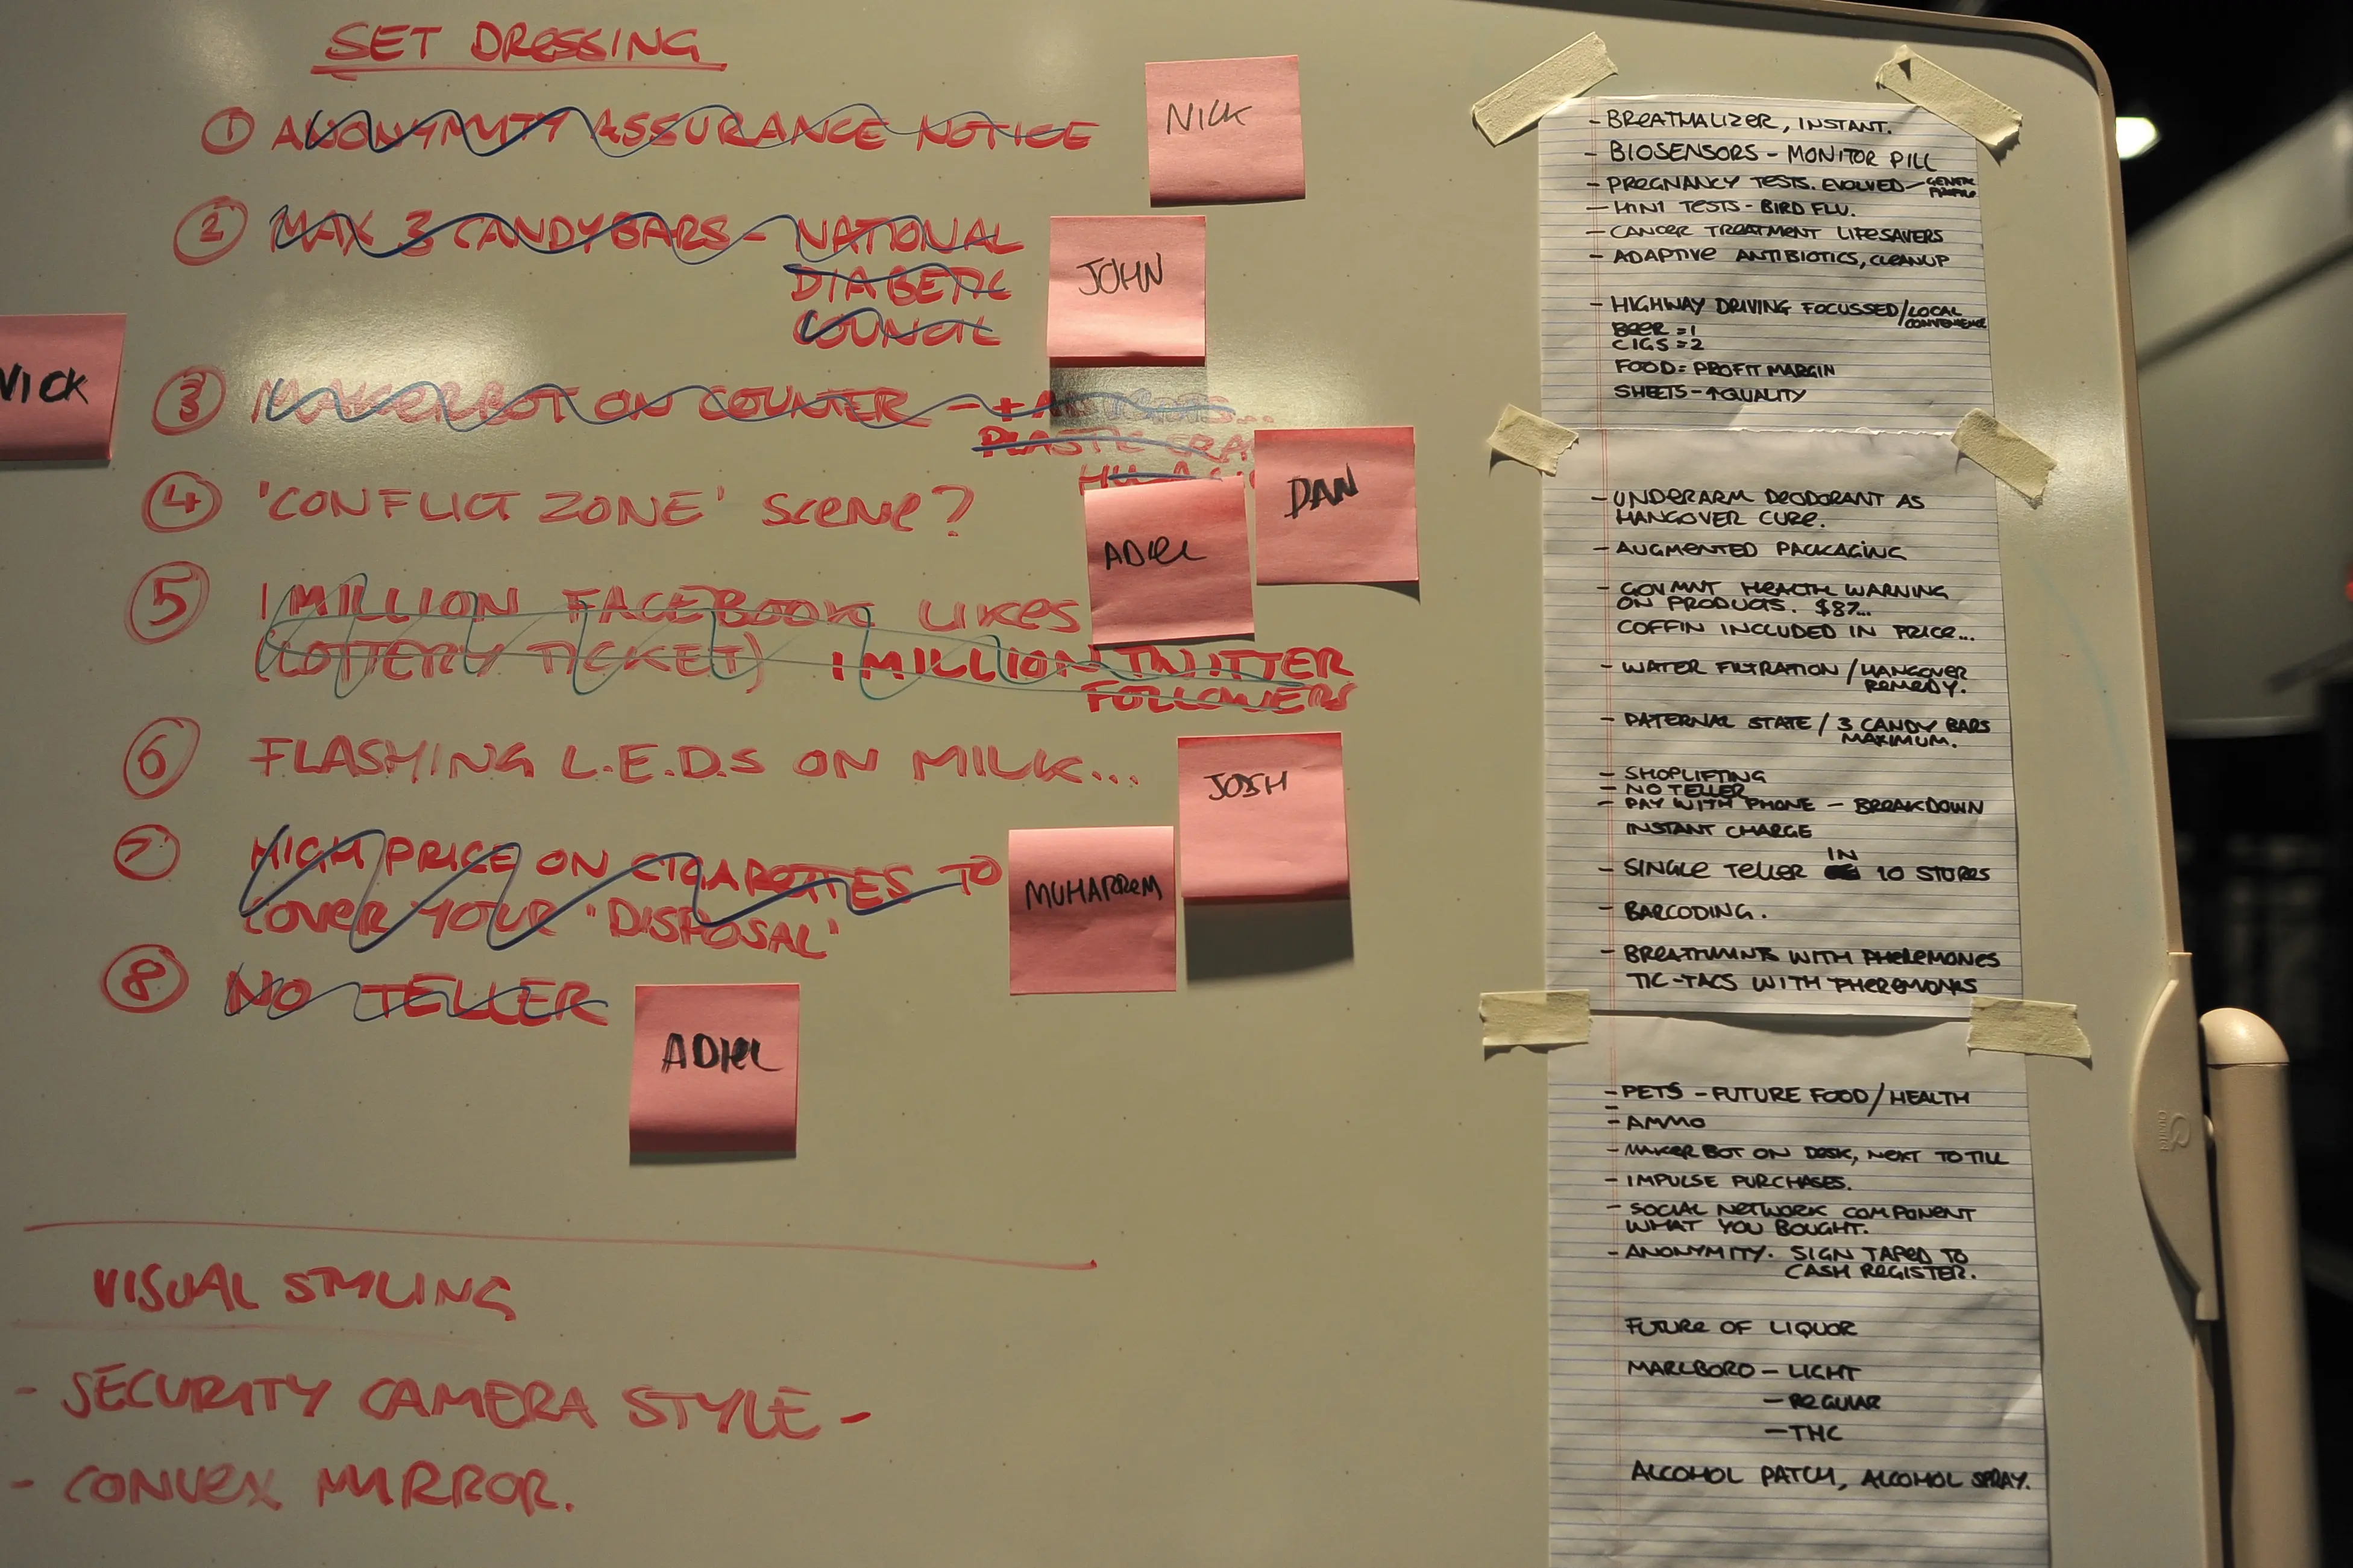 SET DRESSING
① ANONYMITY ASSURANCE NOTICE
NICK
② MAX 3 CANDYBARS - NATIONAL
DIABETIC
COUNCIL
JOHN
NICK
③ MAKERBOT ON COUNTER - +
PLASTIC
④ 'CONFLICT ZONE' SCENE?
DAN
ADIEL
⑤ 1 MILLION FACEBOOK LIKES
(LOTTERY TICKET) 1 MILLION TWITTER
FOLLOWERS
⑥ FLASHING L.E.D.S ON MILK...
JOSH
⑦ HIGH PRICE ON CIGARETTES TO
COVER YOUR "DISPOSAL"
MUHARREM
⑧ NO TELLER
ADIEL
VISUAL STYLING
- SECURITY CAMERA STYLE -
- CONVEX MIRROR.
- BREATHALIZER, INSTANT.
- BIOSENSORS - MONITOR PILL
- PREGNANCY TESTS. EVOLVED -
- H1N1 TESTS - BIRD FLU.
- CANCER TREATMENT LIFESAVERS
- ADAPTIVE ANTIBIOTICS, CLEANUP
- HIGHWAY DRIVING FOCUSSED/LOCAL
CONVENIENCE
BEER = 1
CIGS = 2
FOOD = PROFIT MARGIN
SHEETS - ↑QUALITY
- UNDERARM DEODORANT AS
HANGOVER CURE.
- AUGMENTED PACKAGING
- GOVMNT HEALTH WARNING
ON PRODUCTS. $87...
COFFIN INCLUDED IN PRICE...
- WATER FILTRATION / HANGOVER
REMEDY.
- PATERNAL STATE / 3 CANDY BARS
MAXIMUM.
- SHOPLIFTING
- NO TELLER
- PAY WITH PHONE - BREAKDOWN
INSTANT CHARGE
- SINGLE TELLER IN 10 STORES
- BARCODING.
- BREATHMINTS WITH PHEREMONES
TIC-TACS WITH PHEREMONES
- PETS - FUTURE FOOD/HEALTH
- AMMO
- MAKERBOT ON DESK, NEXT TO TILL
- IMPULSE PURCHASES.
- SOCIAL NETWORK COMPONENT
WHAT YOU BOUGHT.
- ANONYMITY. SIGN TAPED TO
CASH REGISTER.
FUTURE OF LIQUOR
MARLBORO - LIGHT
- REGULAR
- THC
ALCOHOL PATCH, ALCOHOL SPRAY.